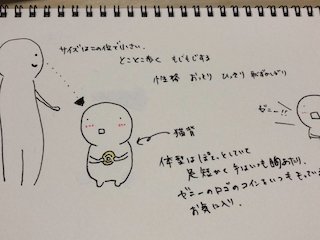 サイズはこの位で小さい。
とことこ歩く もじもじする
性格 おっとり ひっそり 恥ずかしがり
ゼニー!!
猫背
体型はぽてっとしていて
足短かく手はいつも胸あたり。
ゼニーのロゴのコインをいつももってい
お気に入り。